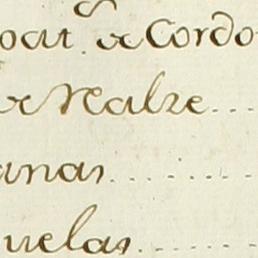 oat. de Cordo
de Realze....
anas.......
uelas......